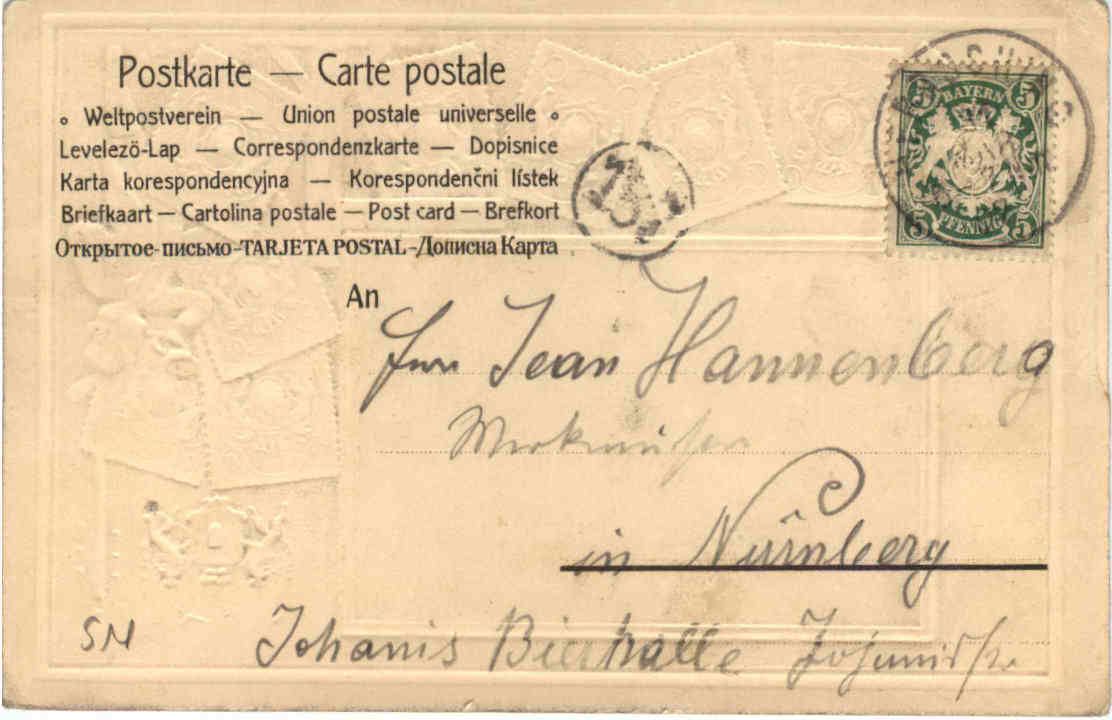 Postkarte — Carte postale
Weltpostverein — Union postale universelle
Levelező-Lap — Correspondenzkarte — Dopisnice
Karta korespondencyjna — Korespondenčni lístek
Briefkaart — Cartolina postale — Post card — Brefkort
Открытое-письмо-TARJETA POSTAL-Дописна Карта
BAYERN
5 5
5 PFENNIG 5
An
Herrn Jean Hannenberg
Werkmeister
in Nürnberg
SN Johanis Bierhalle Johannisstr.